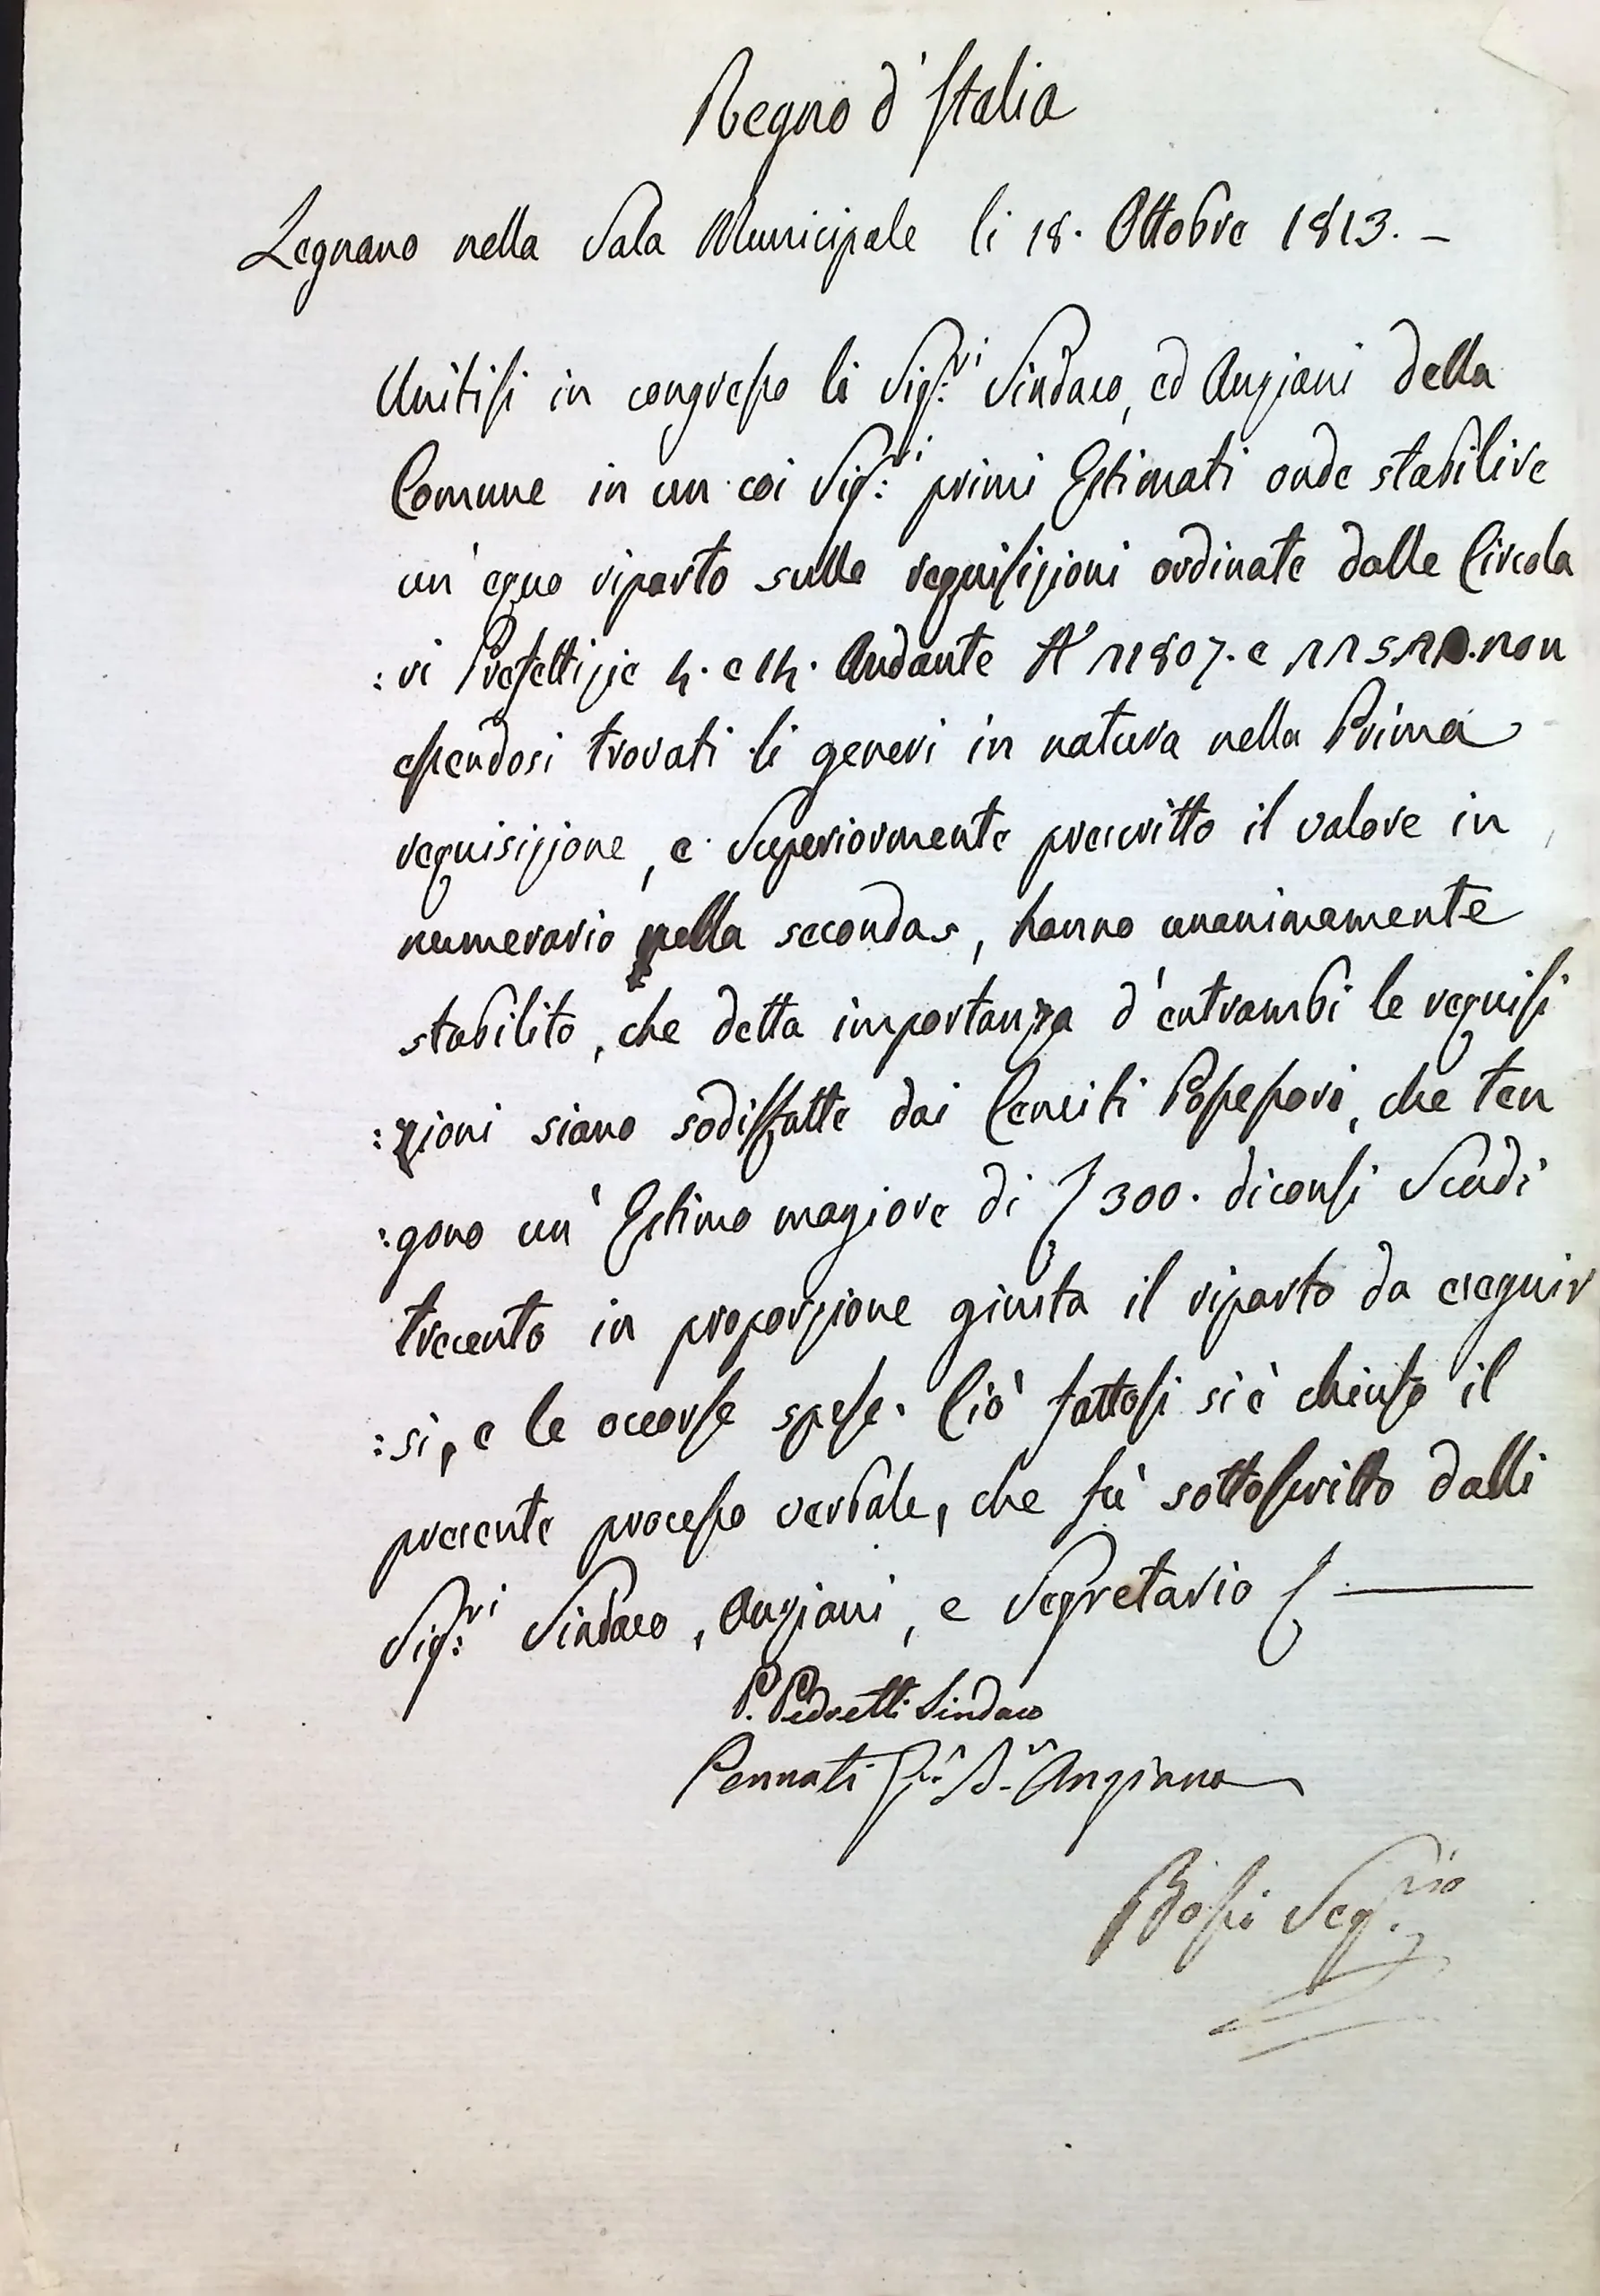 Regno d'Italia
Legnano nella Sala Municipale li 18. Ottobre 1813. –
Unitisi in congresso li Sig:ri Sindaco, ed Anziani della
Comune in un coi Sig:ri primi Estimati onde stabilire
un'equo riparto sulle requisizioni ordinate dalle Circola
:ri Prefettizie 4. e 14. Andante N° 11807. e non
essendosi trovati li generi in natura nella Prima
requisizione, e Superiormente prescritto il valore in
numerario nella seconda, hanno unanimemente
stabilito, che detta importanza d'entrambi le requisi
:zioni siano sodisfatte dai Censiti Possessori, che ten
:gono un' Estimo magiore di 300. diconsi Scudi
trecento in proporzione giusta il riparto da eseguir
:si, e le occorse spese. Ciò fattosi si è chiuso il
presente processo verbale, che fù sottoscritto dalli
Sig:ri Sindaco, Anziani, e Segretario
P. Pedretti Sindaco
Pennati Anziano
Bossi Seg.rio